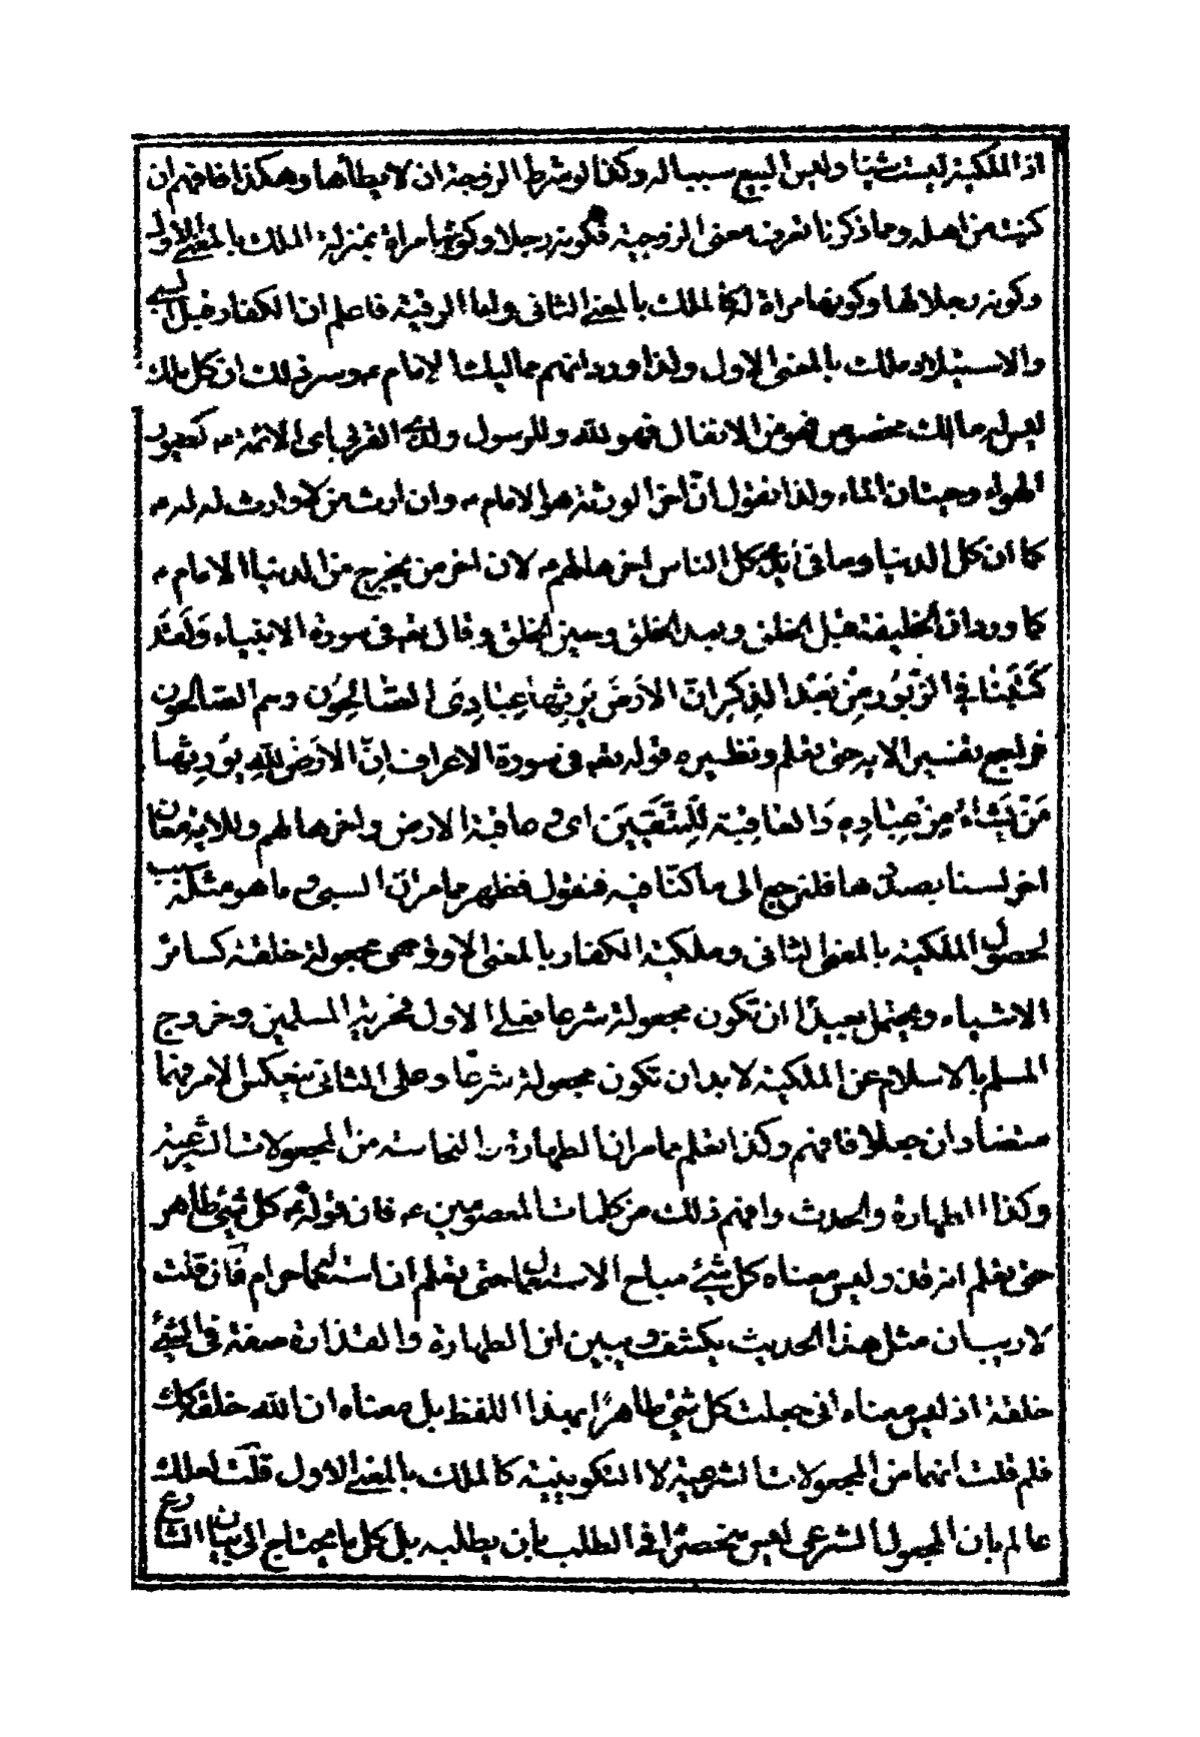 اذ الملكية ليست شيئا وليس البيع سببا له وكذا لو شرط الزوجة ان لا يطأها وهكذا فافهم ان
كنت من اهله ومما ذكرنا تعرف معنى الزوجية فكونه رجلا وكونها مراة بمنزلة الملك بالمعنى الاول
وكونه رجلا لها وكونها مراة له كالملك بالمعنى الثانى واما الرقية فاعلم ان الكفار قبل السبى
والاستيلاء ملك بالمعنى الاول ولذا ورد انهم مماليك الامام ع وسر ذلك ان كل ملك
ليس له مالك مخصوص فهو من الانفال فهو لله وللرسول ولذى القربى اى الائمة ع كطيور
الهواء وحيتان الماء ولذا نقول انّ اخر الورثة هو الامام ع وان ارث من لا وارث له له ع
كما ان كل الدنيا وما فى كل الناس اخرها لهم ع لان اخر من يخرج من الدنيا الامام ع
كما ورد ان الخليفة قبل الخلق وبعد الخلق وحين الخلق وقال تعه فى سورة الانبياء وَلَقَد
كَتَبنا فِى الزّبُور مِن بَعدِ الذِكرِ انّ الارَض يَرِثُها عِبَادِىَ الصّالِحُون وهم الصالحون
فراجع تفسير الاية حتى تعلم ونظيره قوله تعه فى سورة الاعراف اِنّ الارَضَ للهِ يُورِثُها
مَن يَشاءُ مِن عِبَادِه وَالعَاقِبَة لِلمُتَّقِينَ اى عاقبة الارض واخرها لهم وللاية معان
اخر لسنا بصددها فلنرجع الى ما كنّا فيه فنقول فظهر مما مر انّ السبى ما هو مثله سبب
لحصول الملكية بالمعنى الثانى وملكية الكفار بالمعنى الاول هى مجعولة خلقة كسائر
الاشياء ويحتمل بعيدًا ان تكون مجعولة شرعا فعلى الاول فحرية المسلمين وخروج
المسلم بالاسلام عن الملكية لابد ان تكون مجعولة شرعًا وعلى الثانى ينعكس الامر فهما
متضادان جعلا فافهم وكذا تعلم مما مر ان الطهارة والنجاسة من المجعولات الشرعية
وكذا الطهارة والحدث وافهم ذلك من كلمات المعصومين ع فان قوله ع كل شئ طاهر
حتى تعلم انه قذر وليس معناه كل شئ مباح الاستعمال حتى تعلم ان استعماله حرام فان قلت
لا ريب ان مثل هذا الحديث يكشف ويبين ان الطهارة والقذارة صفة فى الشئ
خلقة اذ ليس معناه انى جعلت كل شئ طاهرًا بهذا اللفظ بل معناه ان الله خلقه كك
فلم قلت انهما من المجعولات الشرعية لا التكوينية كالملك بالمعنى الاول قلت لعلك
عالم بان المجعول الشرعى ليس منحصرًا فى الطلب بان يطلبه بل كل ما يحتاج الى بيان الشارع